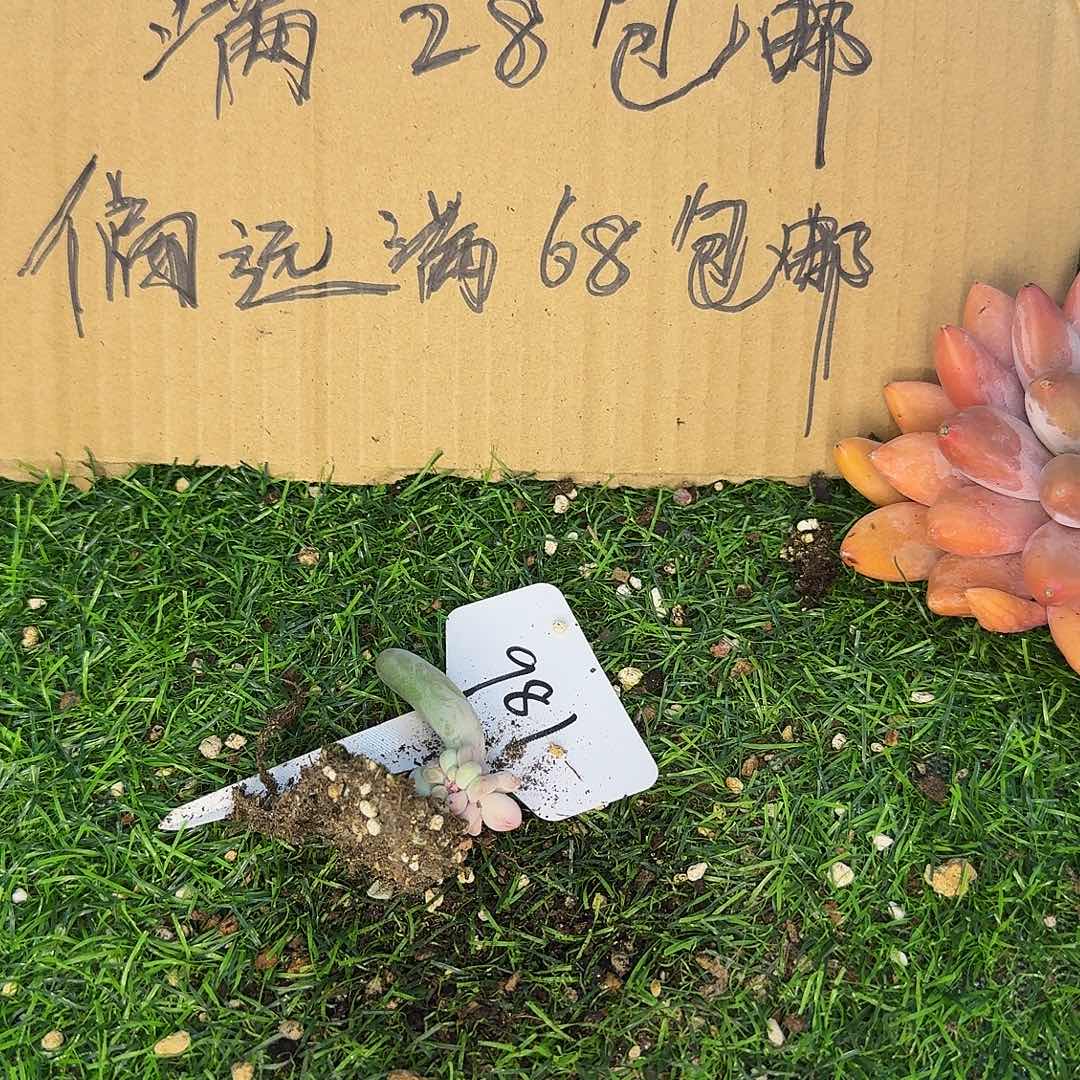 满28包邮
偏远满68包邮
981